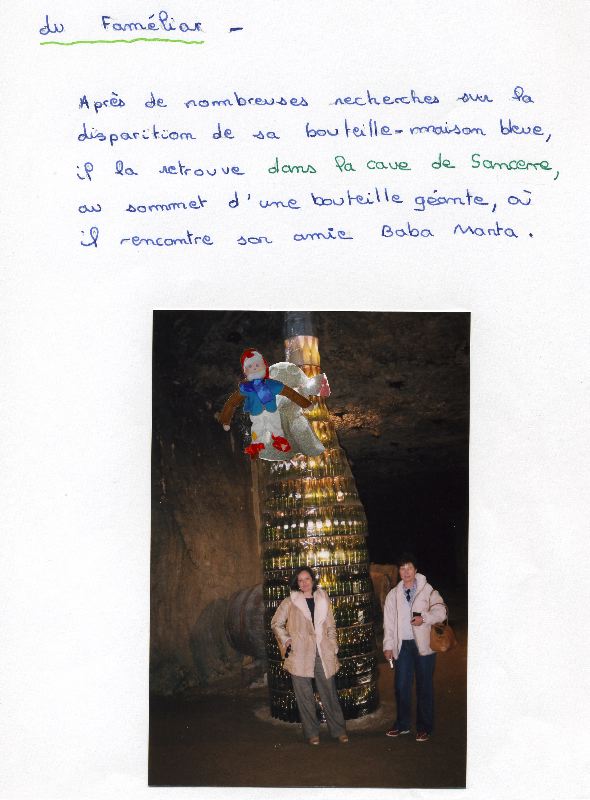 du Faméliar -
Après de nombreuses recherches sur la
disparition de sa bouteille-maison bleue,
il la retrouve dans la cave de Sancerre,
au sommet d'une bouteille géante, où
il rencontre son amie Baba Marta.